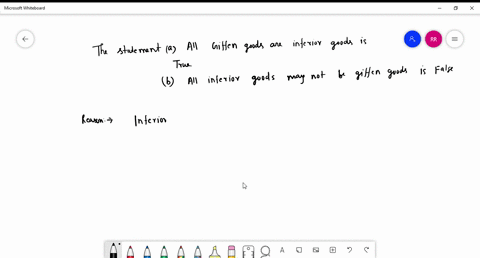 Microsoft Whiteboard
RR
The statement (a) All Giffen goods are inferior goods is
True
(b) All inferior goods may not be giffen goods is False
Reason → Inferior
A